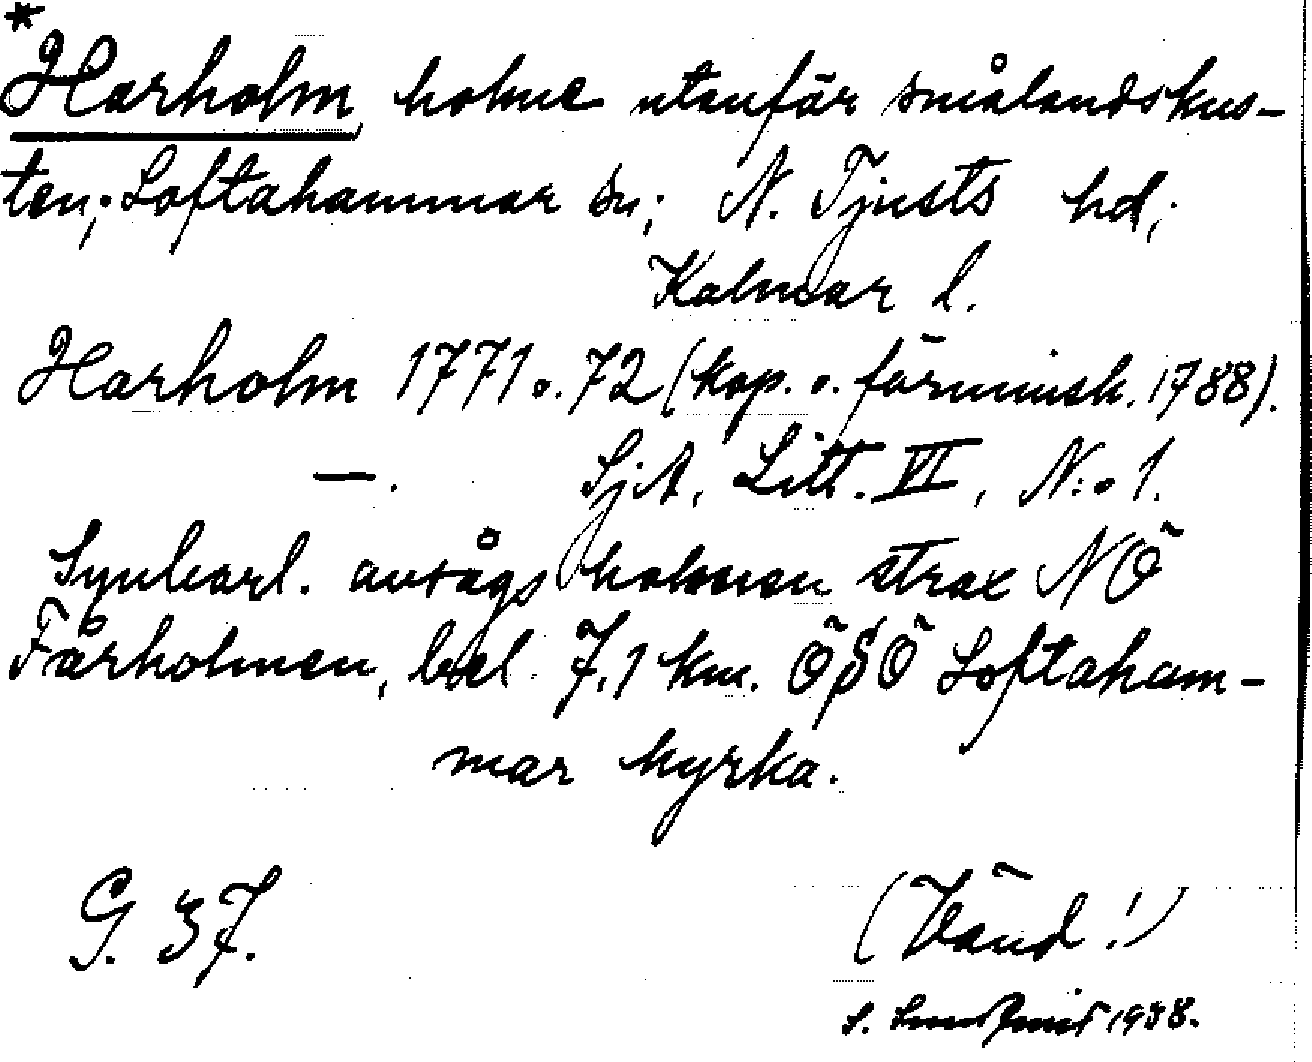 *
Harholm, holme utanför smålandskus-
ten; Loftahammar sn; N. Tjusts hd;
Kalmar l.
Harholm 1771 o. 72 (kop. o. förminsk. 1788).
—. SjA, Litt. VI, N:o 1.
Synbarl. avsågs holmen strax NÖ
Fårholmen, bel. 7,1 km. ÖSÖ Loftaham-
mar kyrka.
G. 37.
(Vänd!)
S. 1938.